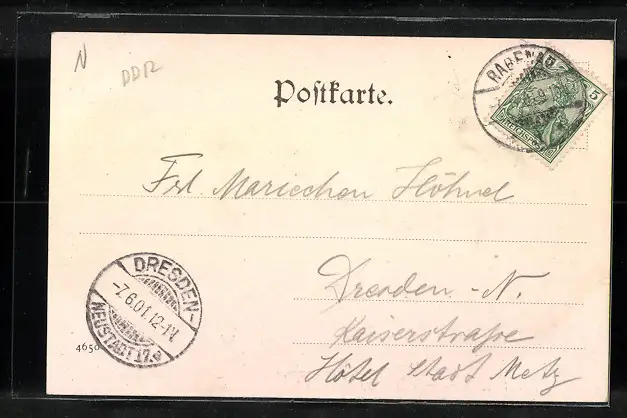 N
DDR
Poſtkarte.
RABENAU
5
REICHSPOST
Frl. Mariechen Höhnel
Dresden-N.
Kaiserstraße
Hôtel Stadt Metz
DRESDEN-
-7.6.01.12-1N
NEUSTADT 17.a
4656